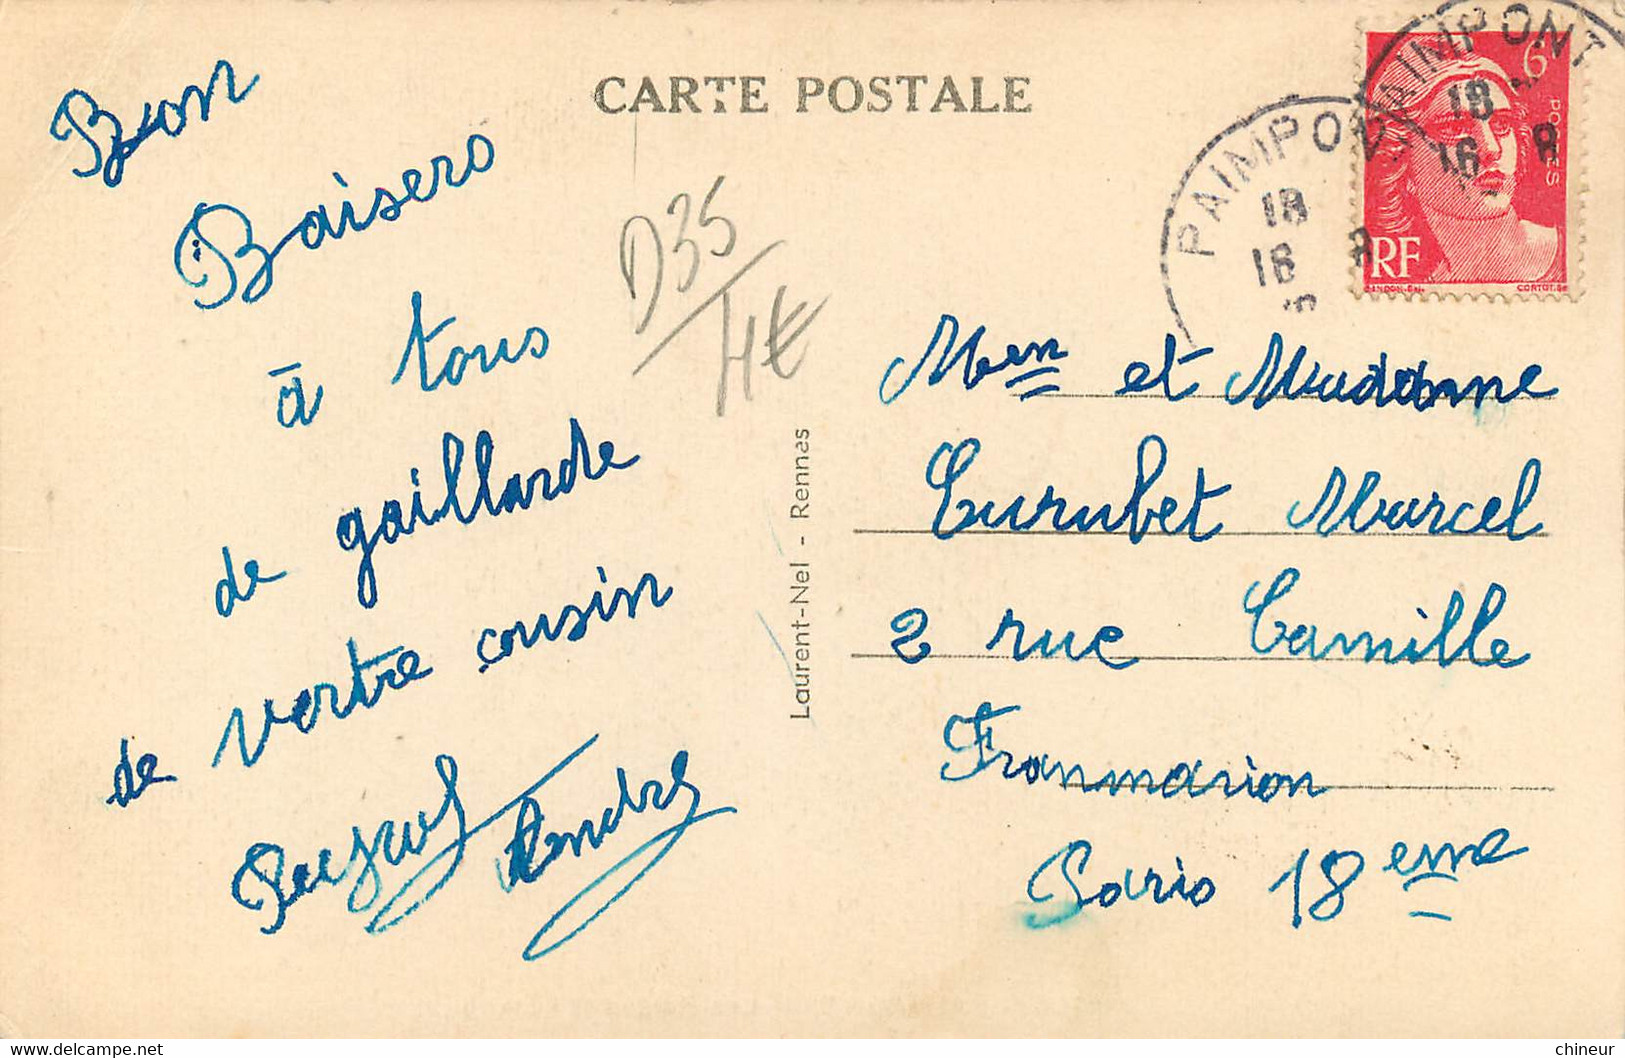 CARTE POSTALE
Bon
Baisers
à tous
de gaillarde
de vortre cousin
Peyrol André
D35
4€
Laurent-Nel - Rennes
PAIMPONT
18
16 8
PAIMPONT
18
18 8
6F
POSTES
RF
GANDON-DEL
CORTOT.SC
Men et Madame
Turubet Marcel
2 rue Camille
Franmarion
Paris 18eme
chineur